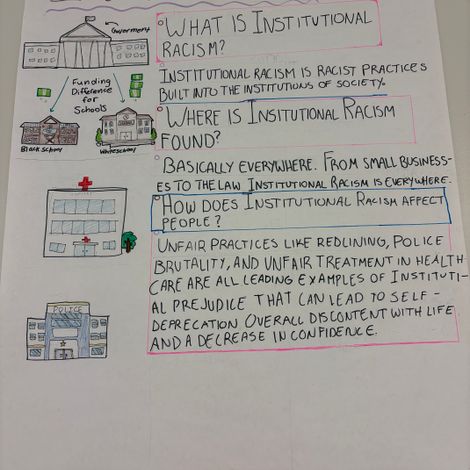 Goverment
WHAT IS INSTITUTIONAL
RACISM?
INSTITUTIONAL RACISM IS RACIST PRACTICES
BUILT INTO THE INSTITUTIONS OF SOCIETY.
Funding
Difference
for
Schools
Black school
White school
WHERE IS INSITUTIONAL RACISM
FOUND?
BASICALLY EVERYWHERE. FROM SMALL BUSINESS-
ES TO THE LAW INSTITUTIONAL RACISM IS EVERYWHERE.
HOW DOES INSTITUTIONAL RACISM AFFECT
PEOPLE?
UNFAIR PRACTICES LIKE REDLINING, POLICE
BRUTALITY, AND UNFAIR TREATMENT IN HEALTH
CARE ARE ALL LEADING EXAMPLES OF INSTITUTI-
AL PREJUDICE THAT CAN LEAD TO SELF-
DEPRECATION OVERALL DISCONTENT WITH LIFE
AND A DECREASE IN CONFIDENCE.
POLICE